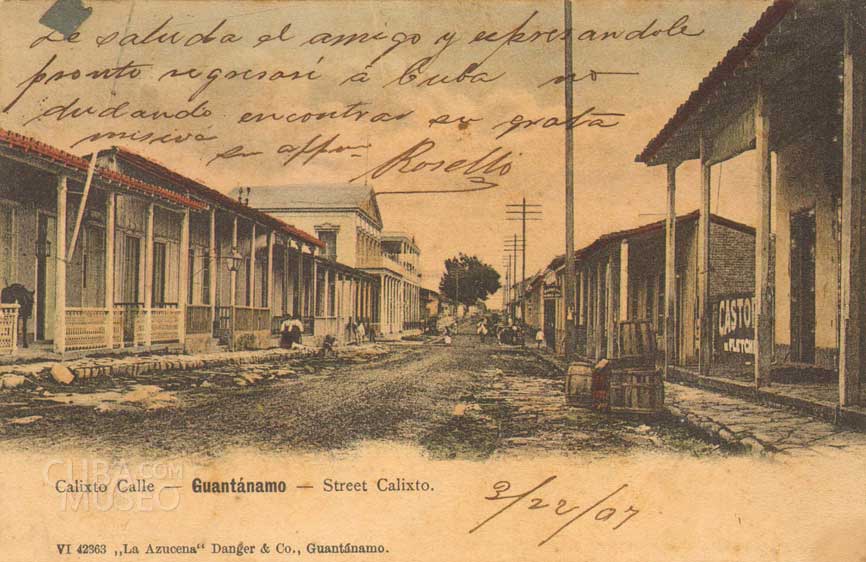 Le saluda el amigo y expresandole
pronto regresaré á Cuba no
dudando encontrar su grata
misiva
su affmo Roselló
CASTOR
FLETCH
CUBA.COM
MUSEO
Calixto Calle — Guantánamo — Street Calixto.
3/22/07
VI 42363 „La Azucena“ Danger & Co., Guantánamo.